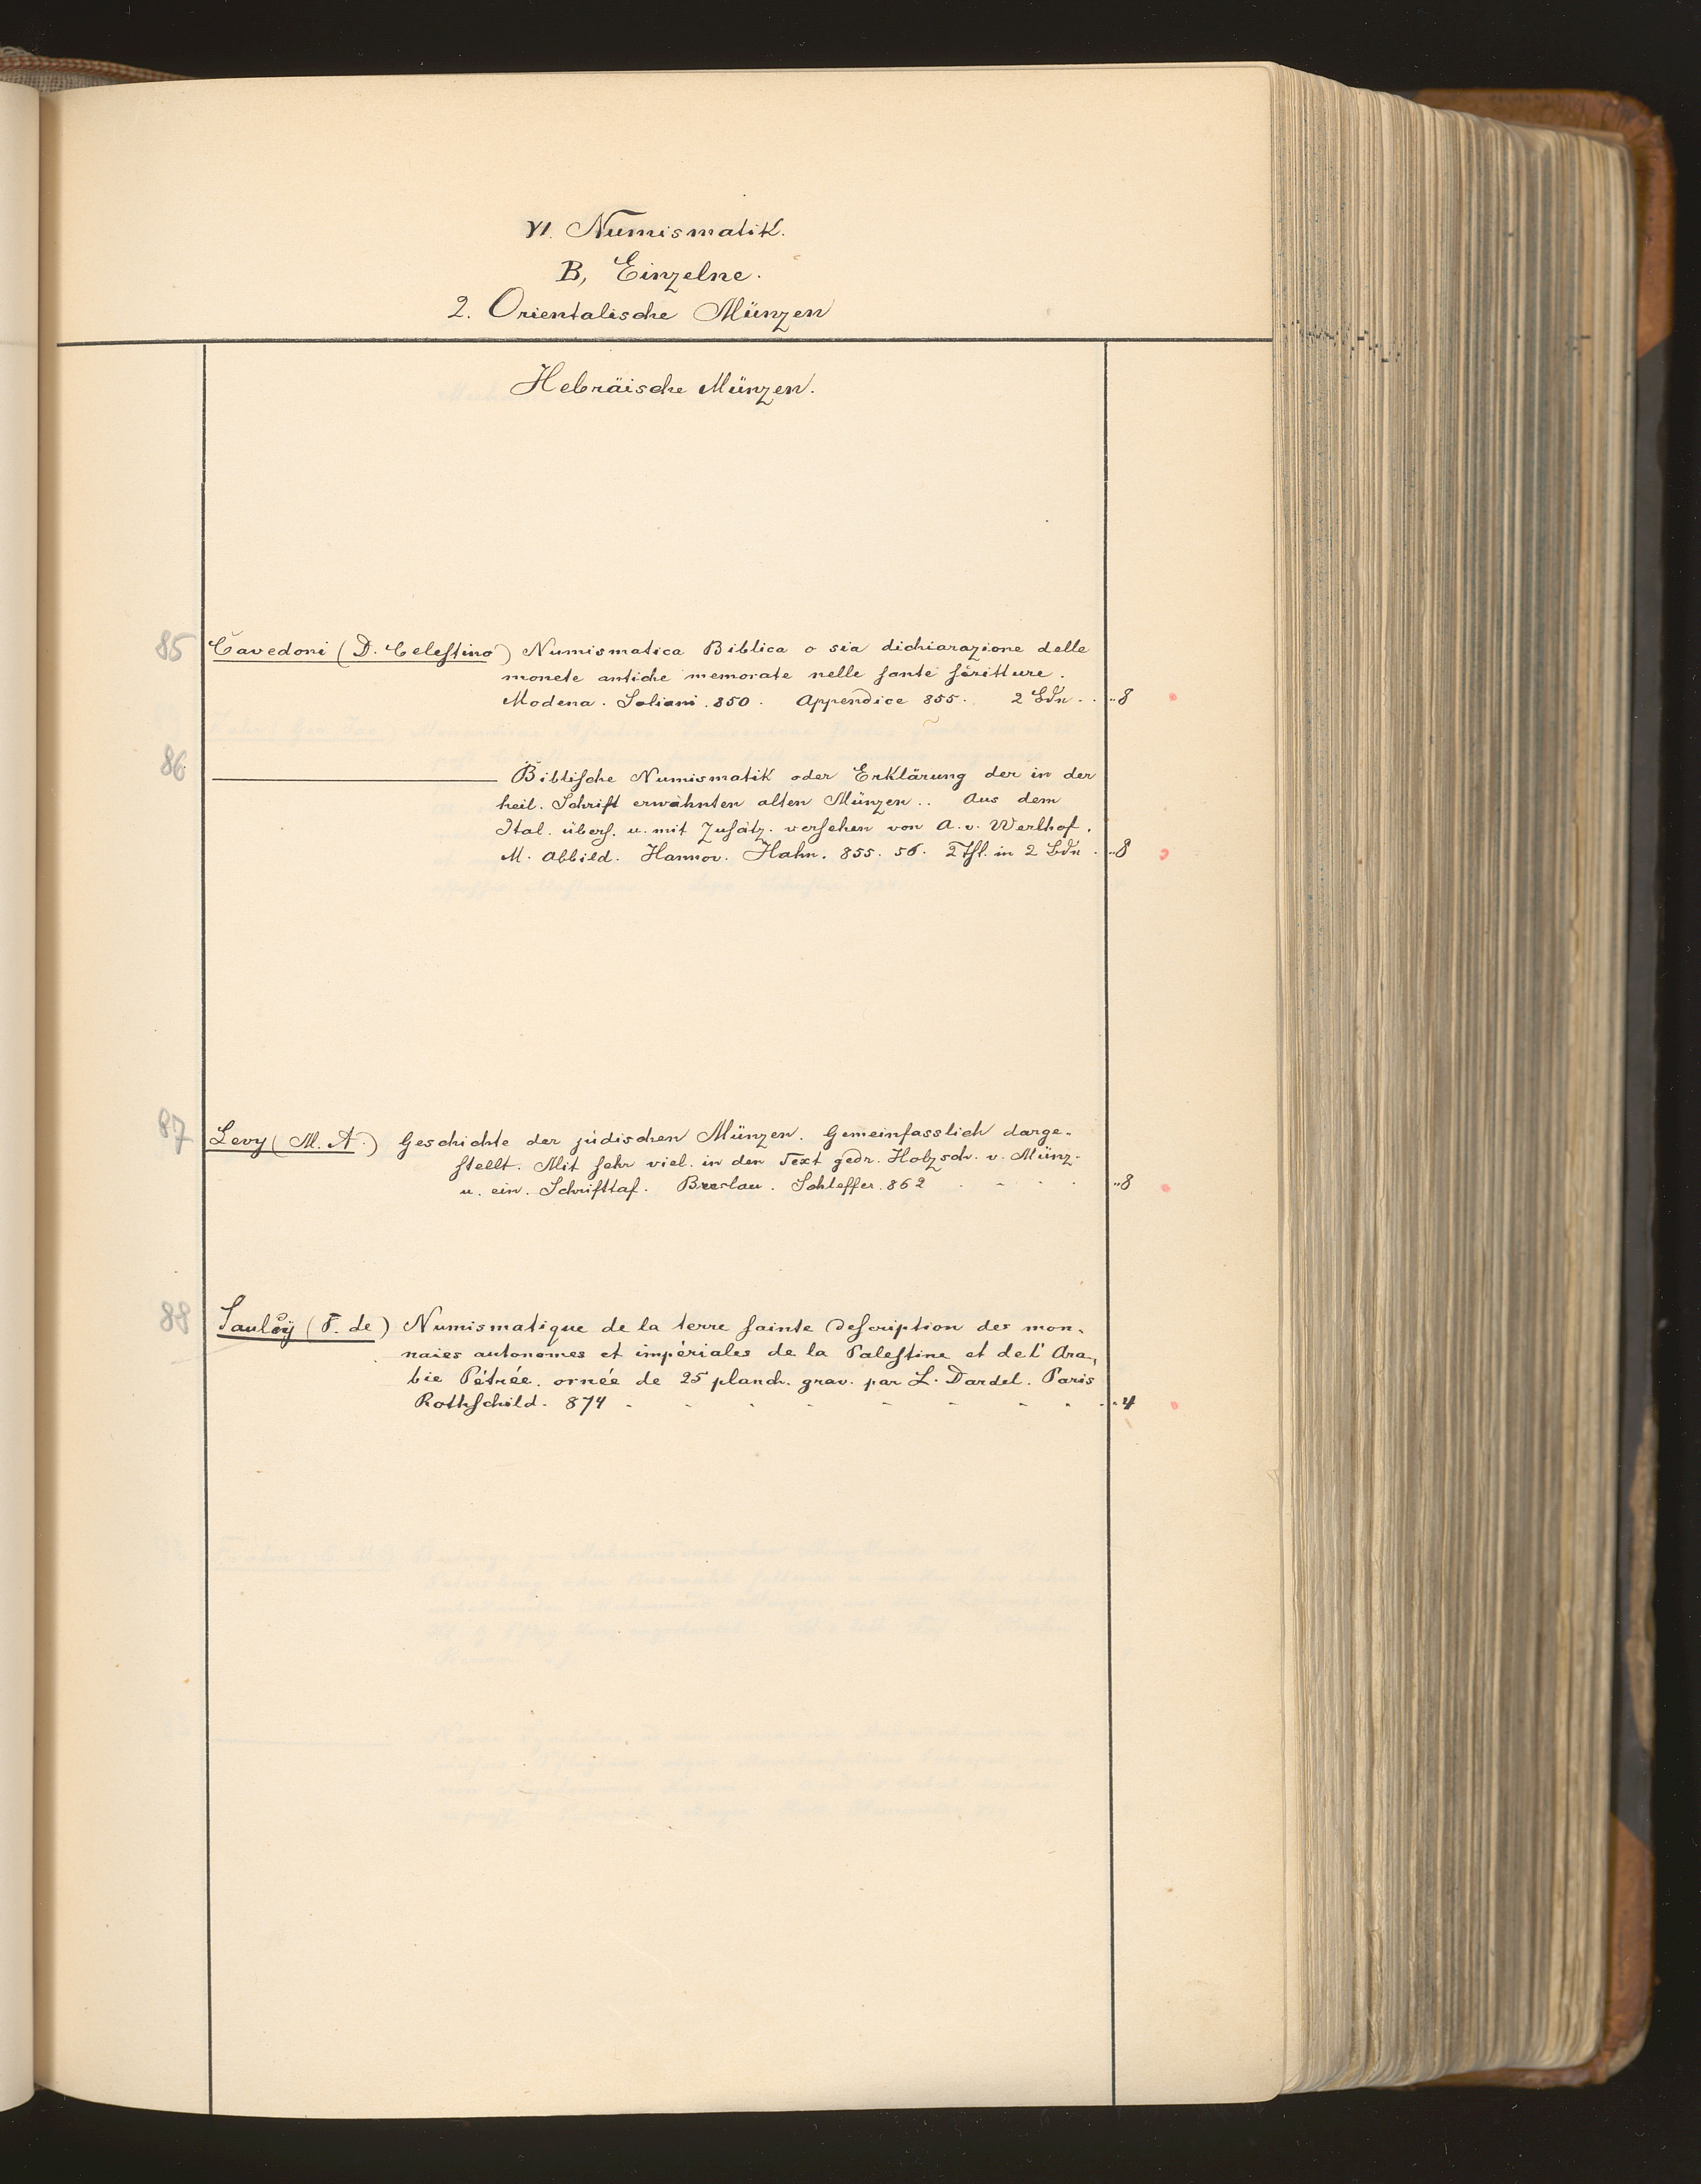 VI. Numismatik.
B, Einzelne.
2. Orientalische Münzen
Hebräische Münzen.
85 Cavedoni (D. Celestino) Numismatica Biblica o sia dichiarazione delle
monete antiche memorate nelle sante scritture.
Modena. Soliani. 850. Appendice 855. 2 Bdn. . „8
86 ——— Biblische Numismatik oder Erklärung der in der
heil. Schrift erwähnten alten Münzen.. Aus dem
Ital. übers. u. mit Zusätz. versehen von A. v. Werlhof.
M. Abbild. Hannov. Hahn. 855. 56. 2 Thl. in 2 Bdn . „8
87 Levy (M. A.) Geschichte der jüdischen Münzen. Gemeinfasslich darge-
stellt. Mit sehr viel. in den Text gedr. Holzsch. v. Münz.
u. ein. Schrifttaf. Breslau. Schletter. 862 . - . . „8
88 Saulcÿ (F. de) Numismatique de la terre sainte description des mon-
naies autonomes et impériales de la Palestine et de l'Ara-
bie Pétrée. ornée de 25 planch. grav. par L. Dardel. Paris
Rothschild. 874 - - - - - - - . . „4